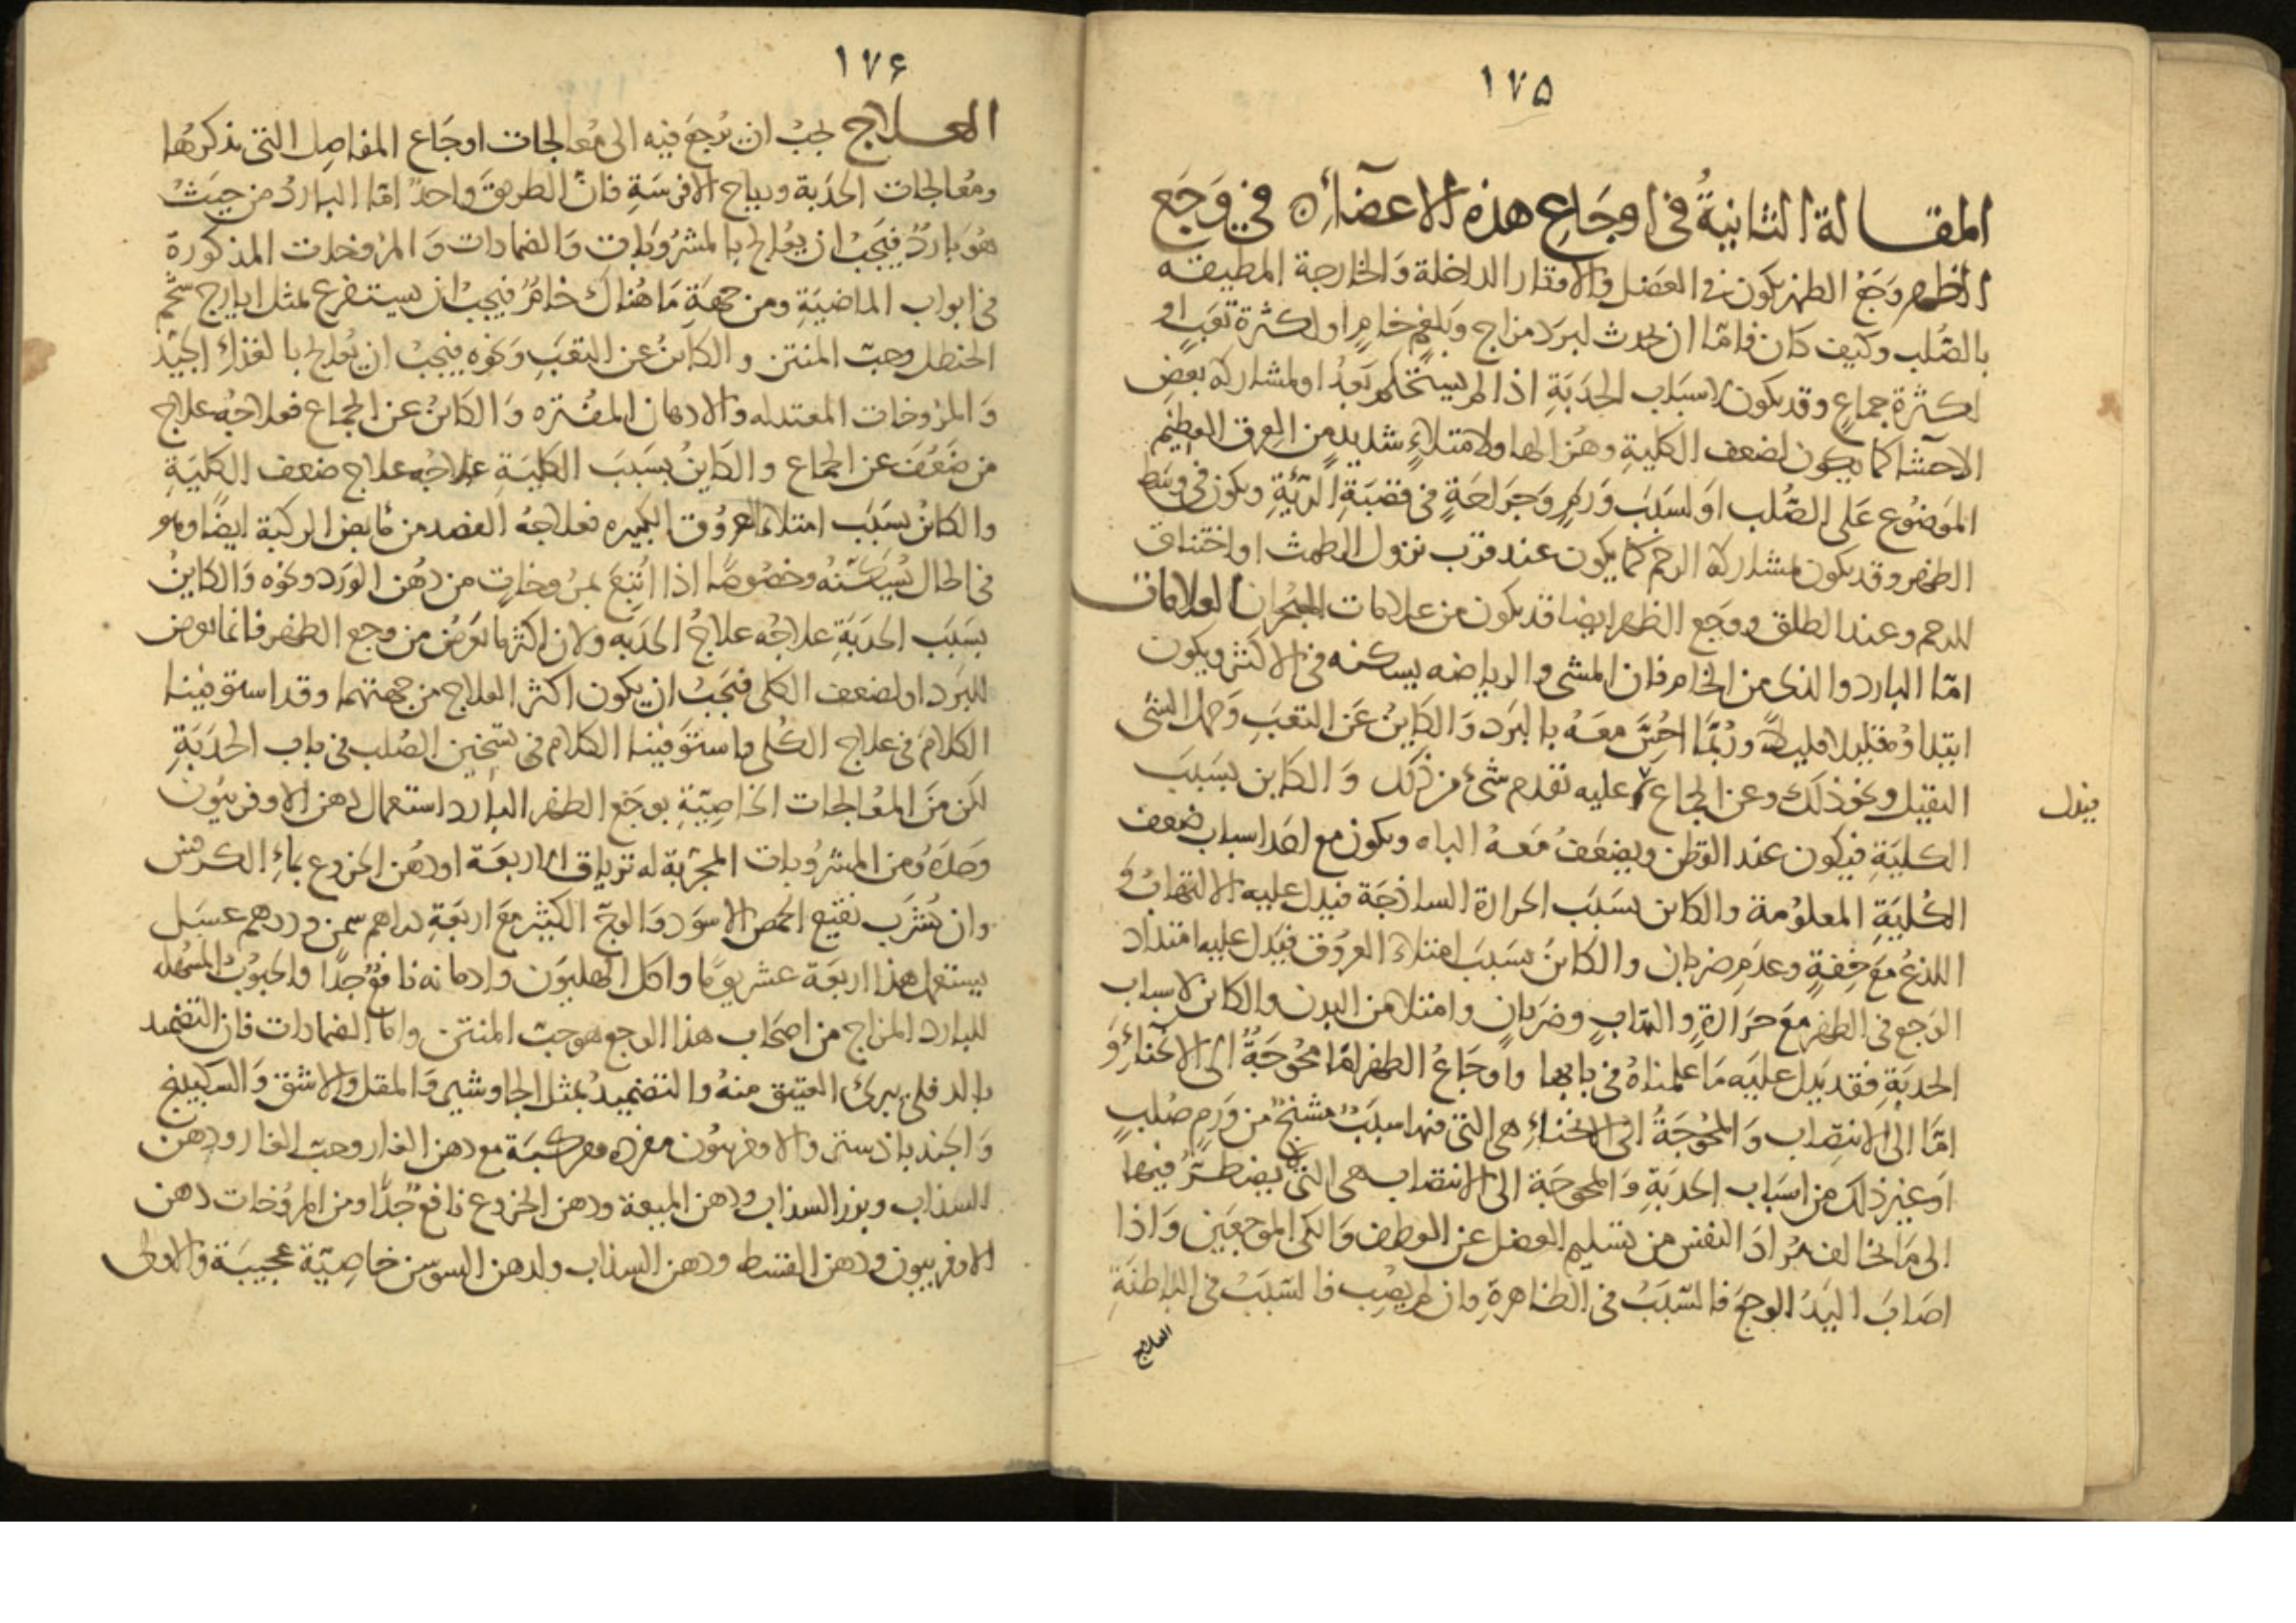 ١٧٥
المقالة الثانية في اوجاع هذه الاعضاء في وجع
الظهر وجع الظهر يكون في العضل والاوتار الداخلة والخارجة المطيفه
بالصلب وكيف كان فاما ان يحدث لبرد مزاج وبلغم خام او لكثرة تعب او
لكثرة جماع وقد يكون لاسباب الحدبة اذا لم يستحكم بعد او لمشاركة بعض
الاحشا كما يكون لضعف الكلية وهزالها ولامتلاء شديد من العرق العظيم
الموضوع على الصلب او لسبب ورم وجراحة في قصبة الرئة ويكون في وسط
الظهر وقد يكون لمشاركة الرحم كما يكون عند قرب نزول الطمث او اختناق
الرحم وعند الطلق ووجع الظهر ايضا قد يكون من علامات البحران العلامات
اما البارد والذى من الخام فان المشى والرياضه يسكنه في الاكثر ويكون
ابتداؤه قليلا قليلا وربما احس معه بالبرد والكاين عن التعب وحمل الشى
الثقيل ونحو ذلك وعن الجماع عليه تقدم شىء من ذلك والكاين بسبب
فيدل
الكلية فيكون عند القطن ويضعف معه الباه ويكون مع احد اسباب ضعف
الكلية المعلومة والكاين بسبب الحرارة الساذجة فيدل عليه الالتهاب و
اللذع مع خفة وعدم ضربان والكاين بسبب امتلاء العروق فيدل عليه امتداد
الوجع في الظهر مع حرارة والتهاب وضربان وامتلا من البدن والكاين لاسباب
الحدبة فقد يدل عليه ما علمناه في بابها واوجاع الظهر اما محوجة الى الانحناء و
اما الى الانتصاب والمحوجة الى الانحناء هى التى فيها سبب مشنج من ورم صلب
او غير ذلك من اسباب الحدبة والمحوجة الى الانتصاب هى التى يضطر فيها
الى ما يخالف مراد النفس من تسليم العضل عن العطف والكى الموجعين واذا
اصاب اليد الوجع فالسبب في الظاهرة وان لم يصب فالسبب في الباطنة
العلاج
١٧۶
العلاج يجب ان يرجع فيه الى معالجات اوجاع المفاصل التى نذكرها
ومعالجات الحدبة ورياح الافرسة فان الطريق واحد اما البارد من حيث
هو بارد فيجب ان يعالج بالمشروبات والضمادات والمروخات المذكورة
في ابواب الماضية ومن جهة ما هناك خام فيجب ان يستفرغ بمثل ايارج شحم
الحنظل وحب المنتن والكاين عن التعب ونحوه فيجب ان يعالج بالغذاء الجيد
والمروخات المعتدله والادهان المفتره والكاين عن الجماع فعلاجه علاج
من ضعف عن الجماع والكاين بسبب الكلية علاجه علاج ضعف الكلية
والكاين بسبب امتلاء العروق الكبيره فعلاجه الفصد من مابض الركبة ايضا وهو
في الحال يسكنه وخصوصا اذا اتبع بمروخات من دهن الورد ونحوه والكاين
بسبب الحدبة علاجه علاج الحدبه ولان اكثر ما يعرض من وجع الظهر فانما يعرض
للبرد او لضعف الكلى فيجب ان يكون اكثر العلاج من جهتهما وقد استوفينا
الكلام في علاج الكلى واستوفينا الكلام في تسخين الصلب في باب الحدبة
لكن من المعالجات الخاصية بوجع الظهر البارد استعمال دهن الاوفربيون
وحده ومن المشروبات المجربة له ترياق الاربعة او دهن الخروع بماء الكرفس
وان يشرب نقيع الحمص الاسود والوج الكثير مع اربعة دراهم سمن ودرهم عسل
يستعمل هذا اربعة عشر يوما واكل الهليون وادمانه نافع جدا والحبوب المسهله
للبارد المزاج من اصحاب هذا الوجع هو حب المنتن واما الضمادات فان التضميد
بالدفلى يبرى العتيق منه والتضميد بمثل الجاوشير والمقل والاشق والسكبينج
والجندبادستر والاوفربيون مفرده ومركبة مع دهن الغار وحب الغار ودهن
السذاب وبزر السذاب ودهن الميعة ودهن الخروع نافع جدا ومن المروخات دهن
الاوفربيون ودهن القسط ودهن السذاب ولدهن السوسن خاصية عجيبة والاولى